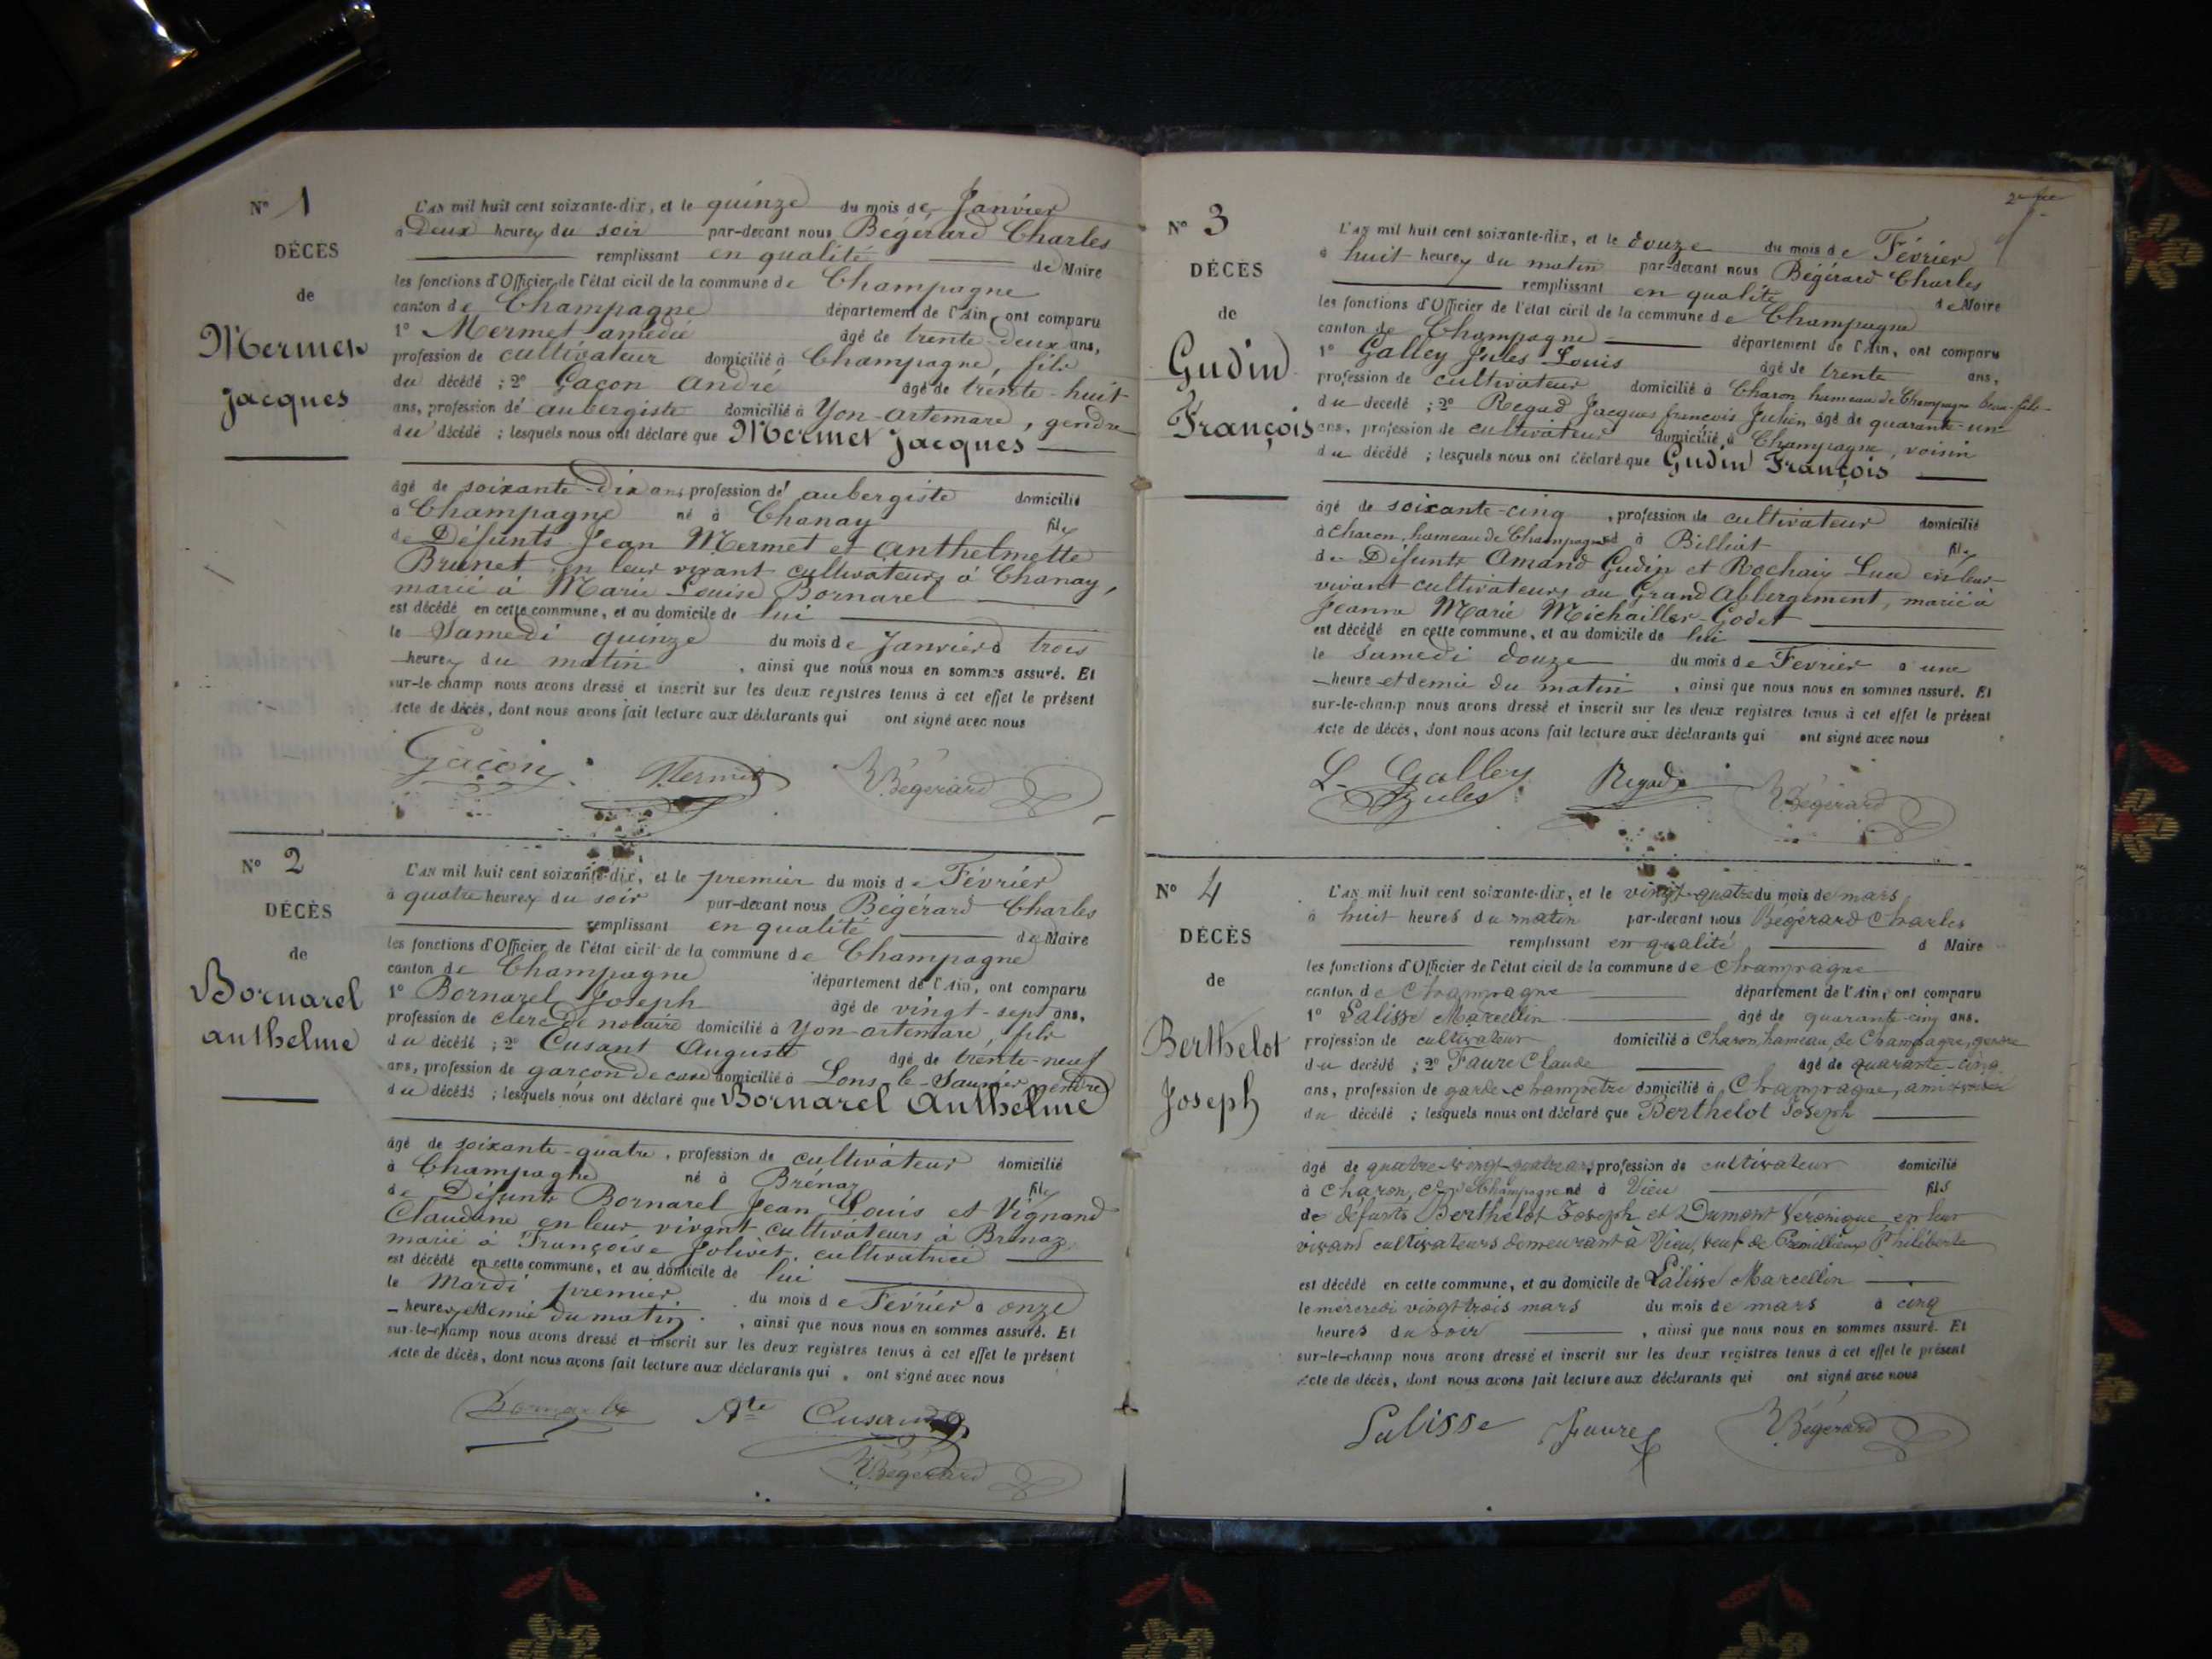 N° 1
DÉCÈS
de
Mermet
Jacques
L'AN mil huit cent soixante-dix, et le quinze du mois de Janvier
à Deux heures du soir par-devant nous Bégérard Charles
remplissant en qualité de Maire
les fonctions d'Officier de l'état civil de la commune de Champagne
canton de Champagne département de l'Ain, ont comparu
1° Mermet amédée âgé de trente-deux ans,
profession de cultivateur domicilié à Champagne, fils
du décédé ; 2° Gacon André âgé de trente-huit
ans, profession de aubergiste domicilié à Yon-artemare, gendre
du décédé ; lesquels nous ont déclaré que Mermet Jacques
âgé de soixante-dix ans, profession de aubergiste domicilié
à Champagne né à Chanay fils
de Défunts Jean Mermet et Anthelmette
Brunet en leur vivant cultivateurs à Chanay,
marié à Marie Louise Bornarel
est décédé en cette commune, et au domicile de lui
le Samedi quinze du mois de Janvier à trois
heures du matin, ainsi que nous nous en sommes assuré. Et
sur-le-champ nous avons dressé et inscrit sur les deux registres tenus à cet effet le présent
Acte de décès, dont nous avons fait lecture aux déclarants qui ont signé avec nous
Gacon Mermet Bégérard
N° 2
DÉCÈS
de
Bornarel
anthelme
L'AN mil huit cent soixante-dix, et le premier du mois de Février
à quatre heures du soir par-devant nous Bégérard Charles
remplissant en qualité de Maire
les fonctions d'Officier de l'état civil de la commune de Champagne
canton de Champagne département de l'Ain, ont comparu
1° Bornarel Joseph âgé de vingt-sept ans,
profession de clerc de notaire domicilié à Yon-artemare fils
du décédé ; 2° Cusant Auguste âgé de trente-neuf
ans, profession de garçon de domicilié à Lons-le-Saunier gendre
du décédé ; lesquels nous ont déclaré que Bornarel Anthelme
âgé de soixante-quatre, profession de cultivateur domicilié
à Champagne né à Brénaz fils
de Défunts Bornarel Jean Louis et Vignand
Claudine en leur vivant cultivateurs à Brénaz
marié à Françoise Jolivet, cultivatrice
est décédé en cette commune, et au domicile de lui
le Mardi premier du mois de Février à onze
heures et demie du matin, ainsi que nous nous en sommes assuré. Et
sur-le-champ nous avons dressé et inscrit sur les deux registres tenus à cet effet le présent
Acte de décès, dont nous avons fait lecture aux déclarants qui ont signé avec nous
Ate Cusant
Bégérard
N° 3
DÉCÈS
de
Gudin
François
L'AN mil huit cent soixante-dix, et le douze du mois de Février
à huit heures du matin par-devant nous Bégérard Charles
remplissant en qualité de Maire
les fonctions d'Officier de l'état civil de la commune de Champagne
canton de Champagne département de l'Ain, ont comparu
1° Galley Jules Louis âgé de trente ans,
profession de cultivateur domicilié à Charon hameau de Champagne beau-fils
du décédé ; 2° Regad Jacques francois Julien âgé de quarante-un
ans, profession de cultivateur domicilié à Champagne, voisin
du décédé ; lesquels nous ont déclaré que Gudin François
âgé de soixante-cinq, profession de cultivateur domicilié
à charon, hameau de Champagne né à Billiat fils
de Défunts Amand Gudin et Rochaix Luce en leur
vivant cultivateurs au Grand Abbergement, marié à
Jeanne Marie Michailler-Godet
est décédé en cette commune, et au domicile de lui
le Samedi douze du mois de Fevrier à une
heure et demie du matin, ainsi que nous nous en sommes assuré. Et
sur-le-champ nous avons dressé et inscrit sur les deux registres tenus à cet effet le présent
Acte de décès, dont nous avons fait lecture aux déclarants qui ont signé avec nous
L. Galley Regad Bégérard
Jules
N° 4
DÉCÈS
de
Berthelot
Joseph
L'AN mil huit cent soixante-dix, et le vingt-quatre du mois de mars
à huit heures du matin par-devant nous Bégérard Charles
remplissant en qualité d Maire
les fonctions d'Officier de l'état civil de la commune de Champagne
canton de Champagne département de l'Ain, ont comparu
1° Lalisse Marcellin âgé de quarante-cinq ans.
profession de cultivateur domicilié à Charon, hameau de Champagne, gendre
du décédé ; 2° Faure Claude âgé de quarante-cinq
ans, profession de garde-champêtre domicilié à Champagne, ami
du décédé ; lesquels nous ont déclaré que Berthelot Joseph
âgé de quatre-vingt-quatre ans, profession de cultivateur domicilié
à charon, Champagne né à Vieu fils
de défunts Berthelot Joseph et Dumont Véronique en leur
vivant cultivateurs demeurant à Vieu, veuf de Philiberte
est décédé en cette commune, et au domicile de Lalisse Marcellin
le mercredi vingt trois mars du mois de mars à cinq
heures du soir, ainsi que nous nous en sommes assuré. Et
sur-le-champ nous avons dressé et inscrit sur les deux registres tenus à cet effet le présent
Acte de décès, dont nous avons fait lecture aux déclarants qui ont signé avec nous
Lalisse Faure Bégérard